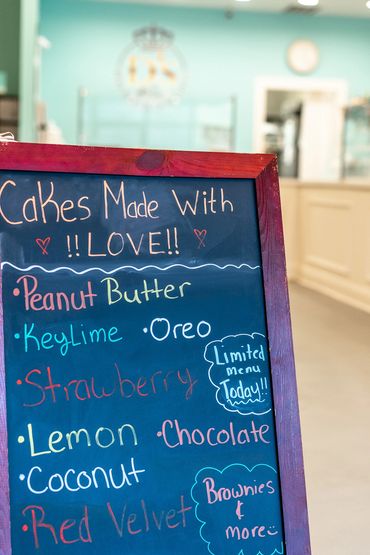 Cakes Made With
!!LOVE!!
•Peanut Butter
•KeyLime •Oreo
Limited
menu
Today!!
•Strawberry
•Lemon •Chocolate
•Coconut
Brownies
&
more
•Red Velvet